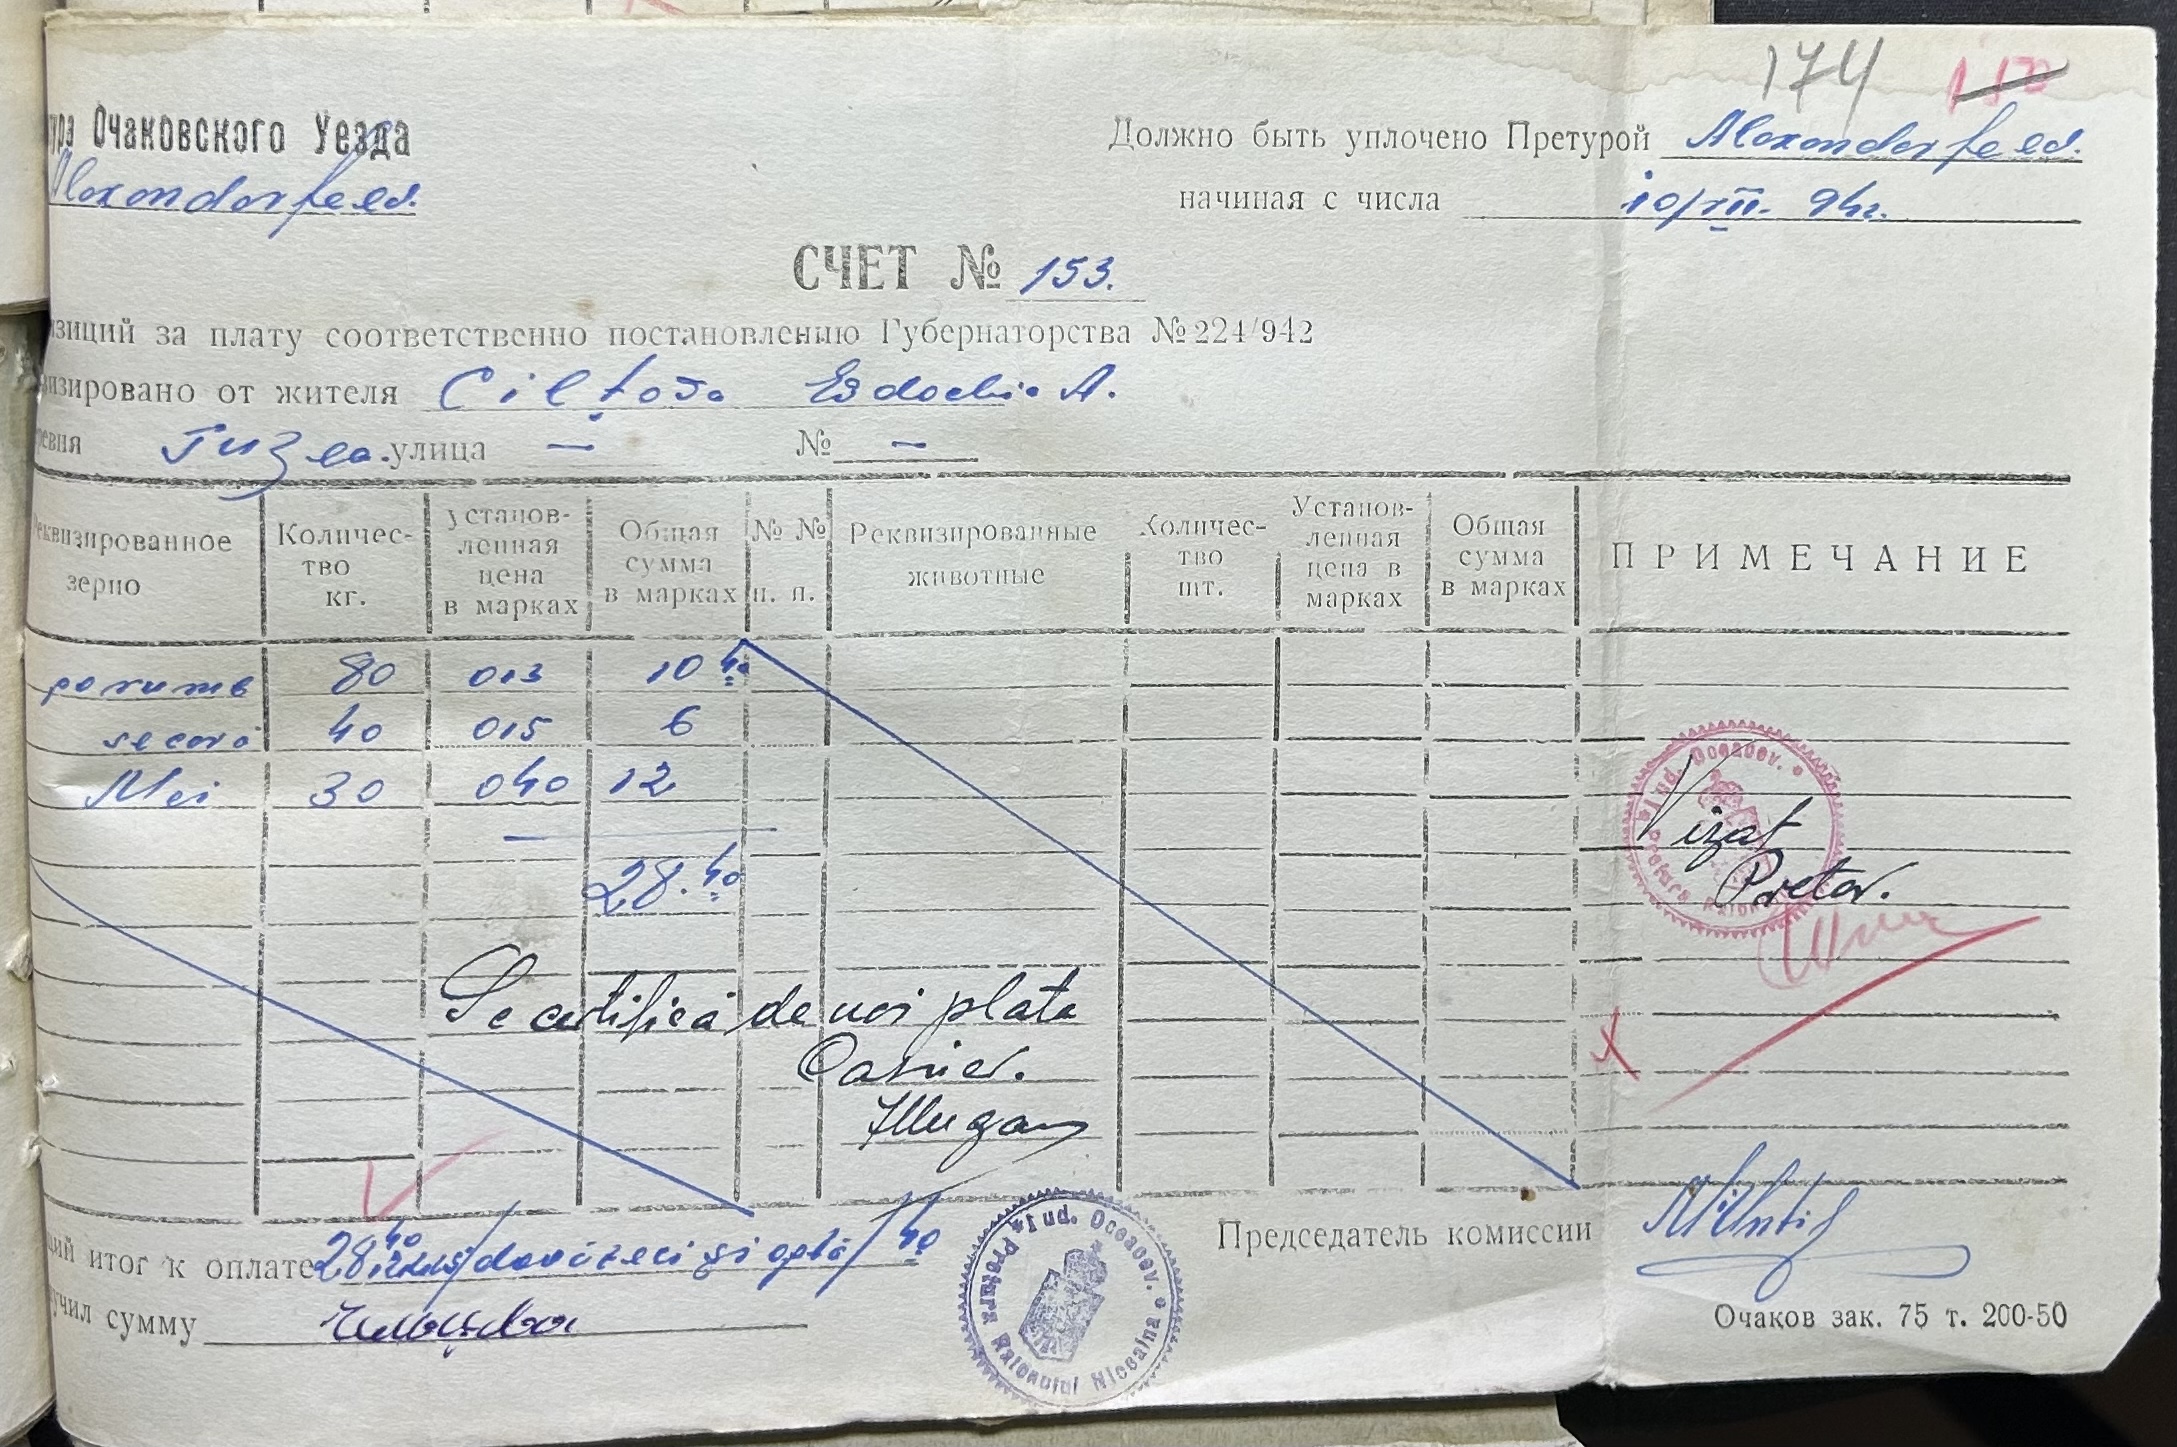 174 150
тура Очаковского Уезда
Alexandarfeld.
Должно быть уплочено Претурой Alexandarfeld.
начиная с числа 10/XII. 942.
СЧЕТ № 153.
изиций за плату соответственно постановлению Губернаторства № 224/942
визировано от жителя Cilțova Evdochia A.
ревня улица — № —
Реквизированное зерно
Количес-тво кг.
установ-ленная цена в марках
Общая сумма в марках
№ № п. п.
Реквизированные животные
Количес-тво шт.
Установ-ленная цена в марках
Общая сумма в марках
ПРИМЕЧАНИЕ
80 013 10 40
secară 40 015 6
Mei 30 040 12
28.40
Vizat
Pretor.
Se certifică de noi plata
Casier.
щий итог к оплате 28 40 /douăzeci și optă/ 40
учил сумму
Председатель комиссии
Очаков зак. 75 т. 200-50
Jud. Oceacov. Pretura Raionului
Jud. Oceacov. Pretura Raionului